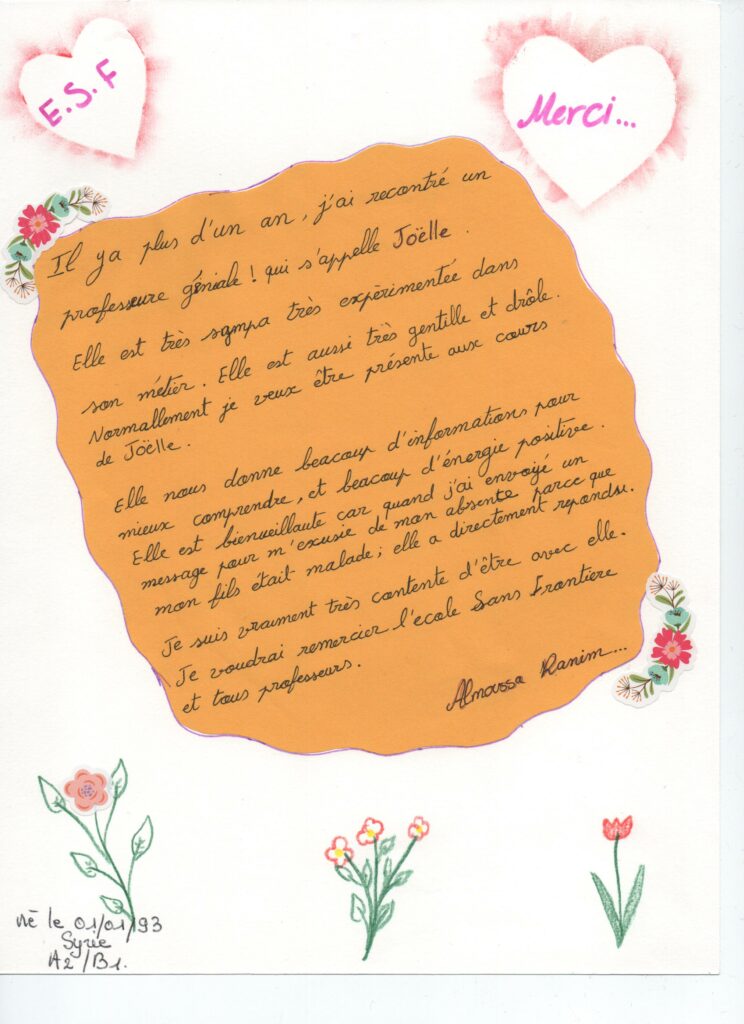 E.S.F
Merci...
Il ya plus d'un an, j'ai recontré un
professeure géniale! qui s'appelle Joëlle.
Elle est très sympa très expérimentée dans
son métier. Elle est aussi très gentille et drôle.
Normallement je veux être présente aux cours
de Joëlle.
Elle nous donne beacoup d'informations pour
mieux comprendre, et beacoup d'énergie positive.
Elle est bienveillaute car quand j'ai envoyé un
message pour m'excusie de mon absente parce que
mon fils était malade; elle a directement repondre.
Je suis vraiment très contente d'être avec elle.
Je voudrai remercier l'ecole Sans Frontiere
et tous professeurs.
Almoussa Ranim...
né le 01/01/93
Syrie
A2/B1.